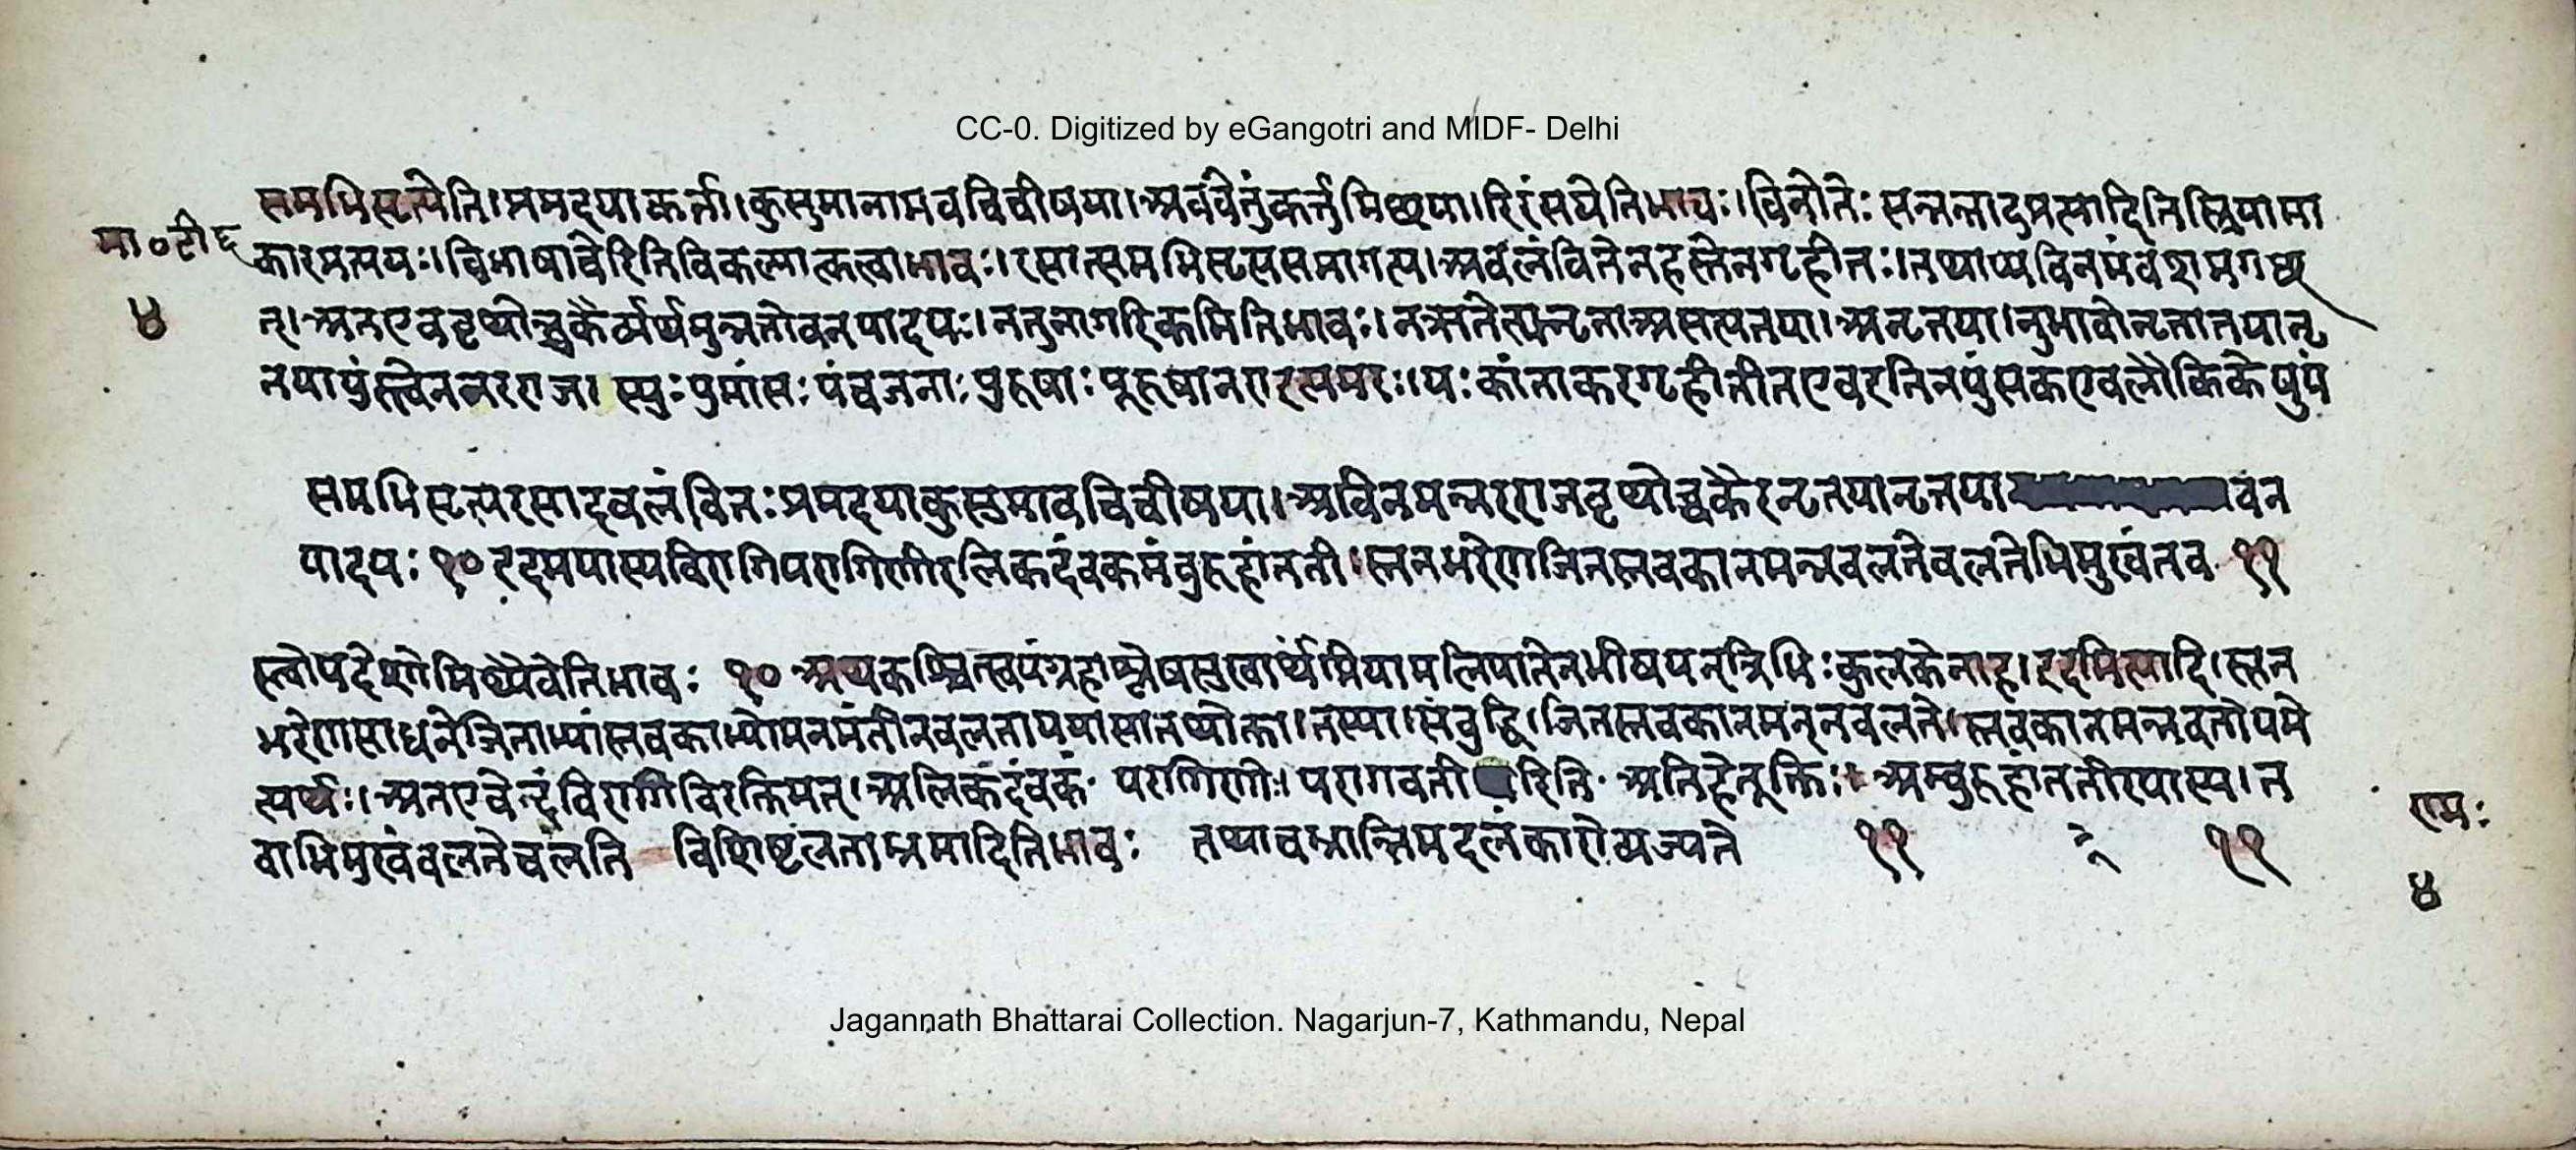 CC-0. Digitized by eGangotri and MIDF- Delhi
समभिसृत्येति।प्रमदयाकर्त्ता।कुसुमानामवचिचीषया।अवचेतुंकर्त्तुमिछया।रिरंसयेतिभावः।चिनोतेः सन्नन्तादप्रत्यादितिस्त्रियामा
मा०टी६
कारप्रत्ययः।विभाषाचेरितिविकल्पात्कत्वाभावः।रसात्समभिसृत्यसमागत्य।अवलंवितेनहस्तेनगृहीतः।तथाप्यविनमंवशमगछ
४
त्।अतएववृथोच्चकैर्व्यर्थमुन्नतोवनपादपः।नतुनागरिकमितिभावः।नऋतेत्यनृतता असत्यतया।अनृतया।नुभावोनृतातयानृ
तयापुंस्त्वेननरराजा स्युःपुमांसः पंचजनाः पुरुषाः पूरुषानराइत्यमरः।यः कांताकरगृहीतीतएवरतिनपुंसकएवलौकिकेषुपुं
समभिसृत्यरसादवलंवितः प्रमदयाकुसुमावचिचीषया।अविनमन्नरराजवृथोच्चकैरनृतयानृतया वन
पादपः १० इदमपास्यविरागिपरागिणीरलिकदंवकमंवुरुहांततीः।स्तनभरेणजितस्तवकानमन्नवलतेवलतेभिमुखंतव ११
स्त्वोपदेशोमिथ्यैवेतिभावः १० अथकश्चित्स्वयंग्रहाश्लेषसुखार्थंप्रियामलिपातेनभीषयन्त्रिभिः कुलकेनाह।इदमित्यादि।स्तन
भरेणसाधनेजिताभ्यांस्तवकाभ्यामानमंतीनवलताययासातथोक्ता।तस्याःसंवुद्धि।जितस्तवकानमन्नवलते।स्तवकानमन्नवतोपमे
त्यर्थः।अतएवेन्द्दंविरागिविरक्तिमत्।अलिकदंवकं परागिणीः।परागवती रिति अतिहेतूक्तिः। अम्वुरुहांततीरपास्य।त
वाभिमुखंवलतेचलति विशिष्टलताभ्रमादितिभावः तथाचभ्रान्तिमदलंकारोव्यज्यते ११ ११
राम:
४
Jagannath Bhattarai Collection. Nagarjun-7, Kathmandu, Nepal